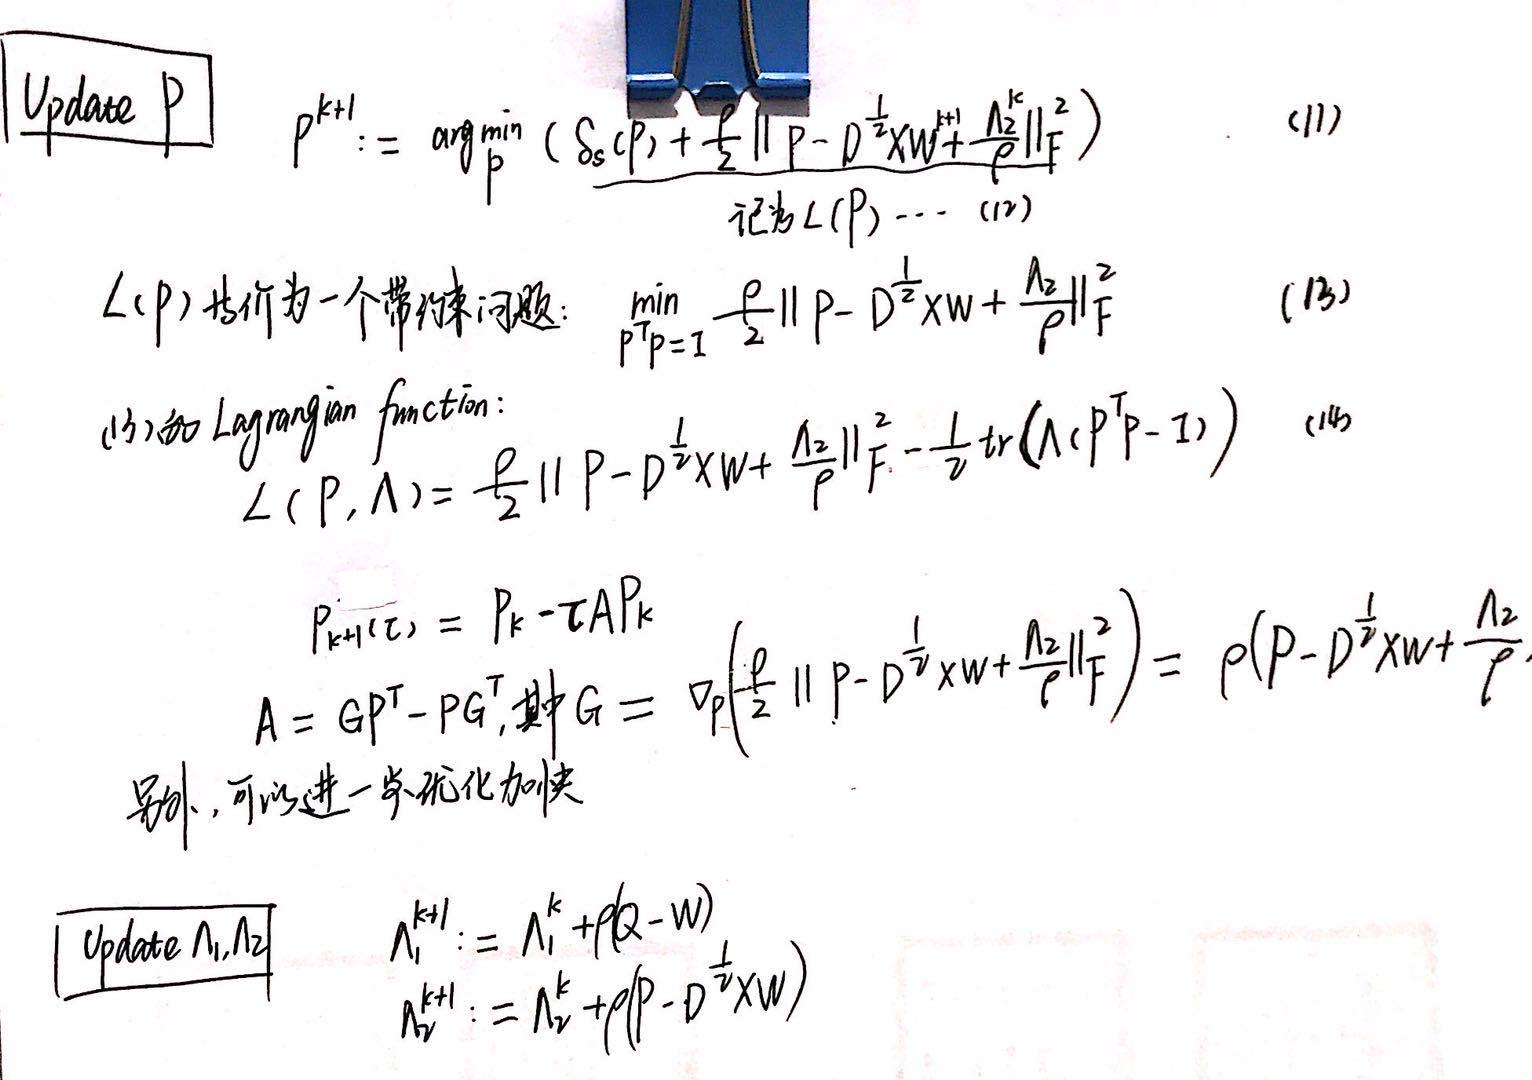 Update P
P^{k+1} := arg min_P ( δ_s(P) + ρ/2 || P - D^{1/2}XW^{k+1} + Λ_2^k/ρ ||_F^2 ) (11)
记为 L(P) ··· (12)
L(P) 等价为一个带约束问题: min_{P^TP=I} ρ/2 || P - D^{1/2}XW + Λ_2/ρ ||_F^2 (13)
(13)的 Lagrangian function:
L(P, Λ) = ρ/2 || P - D^{1/2}XW + Λ_2/ρ ||_F^2 - 1/2 tr(Λ(P^TP - I)) (14)
P_{k+1}(τ) = P_k - τAP_k
A = GP^T - PG^T, 其中 G = ∇_P( ρ/2 || P - D^{1/2}XW + Λ_2/ρ ||_F^2 ) = ρ(P - D^{1/2}XW + Λ_2/ρ
另外, 可以进一步优化加快
Update Λ_1, Λ_2
Λ_1^{k+1} := Λ_1^k + ρ(Q - W)
Λ_2^{k+1} := Λ_2^k + ρ(P - D^{1/2}XW)